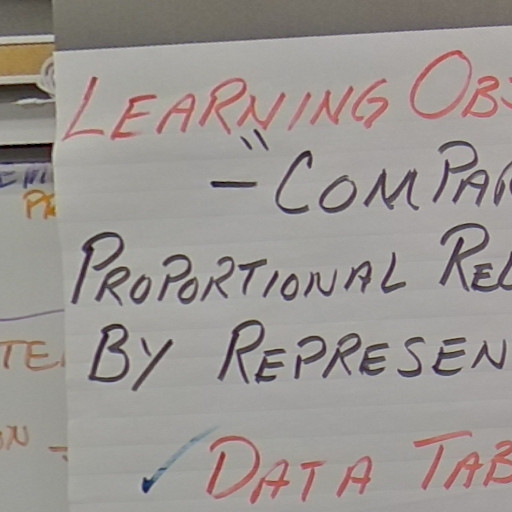 LEARNING OBS
"- COMPAR
PROPORTIONAL REL
BY REPRESEN
✓ DATA TAB